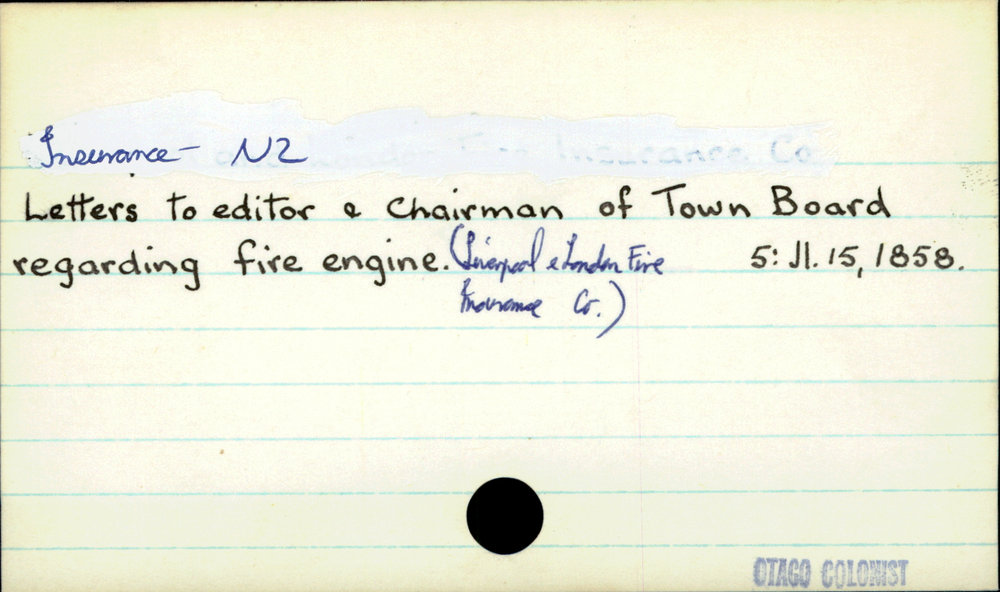 Insurance - NZ
Letters to editor & Chairman of Town Board
regarding fire engine. (Liverpool & London Fire 5: Jl. 15, 1858.
Insurance Co.)
OTAGO COLONIST